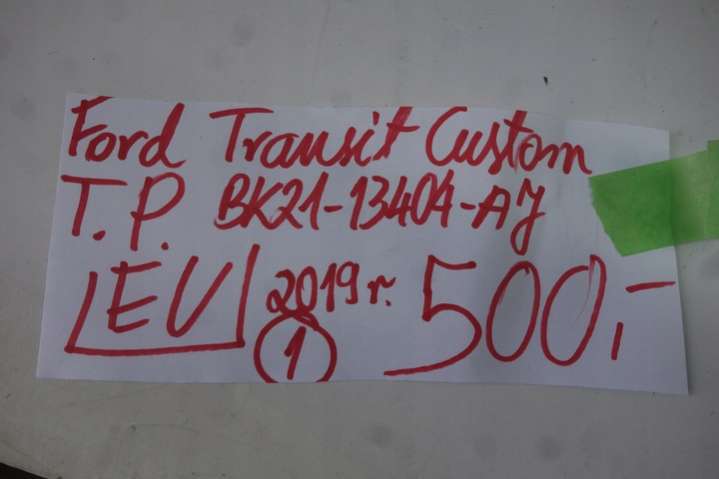 Ford Transit Custom
T.P. BK21-13404-AJ
EU 2019r. 500,-
1